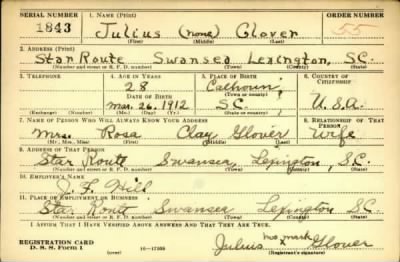 SERIAL NUMBER 1. NAME (Print) ORDER NUMBER
1843 Julius (none) Glover 55
(First) (Middle) (Last)
2. ADDRESS (Print)
Star Route Swansea Lexington, S.C.
(Number and street or R. F. D. number) (Town) (County) (State)
3. TELEPHONE 4. AGE IN YEARS 5. PLACE OF BIRTH 6. COUNTRY OF CITIZENSHIP
28 Calhoun
DATE OF BIRTH (Town or county)
Mar. 26, 1912 S.C. U.S.A.
(Exchange) (Number) (Mo.) (Day) (Yr.) (State or country)
7. NAME OF PERSON WHO WILL ALWAYS KNOW YOUR ADDRESS 8. RELATIONSHIP OF THAT PERSON
Mrs. Rosa Clay Glover Wife
(Mr., Mrs., Miss) (First) (Middle) (Last)
9. ADDRESS OF THAT PERSON
Star Route Swansea, Lexington, S.C.
(Number and street or R. F. D. number) (Town) (County) (State)
10. EMPLOYER'S NAME
J. F. Hill
11. PLACE OF EMPLOYMENT OR BUSINESS
Star Route Swansea Lexington S.C.
(Number and street or R. F. D. number) (Town) (County) (State)
I AFFIRM THAT I HAVE VERIFIED ABOVE ANSWERS AND THAT THEY ARE TRUE.
REGISTRATION CARD
D. S. S. FORM 1 (over) 16—17105
Julius his x mark Glover
(Registrant's signature)